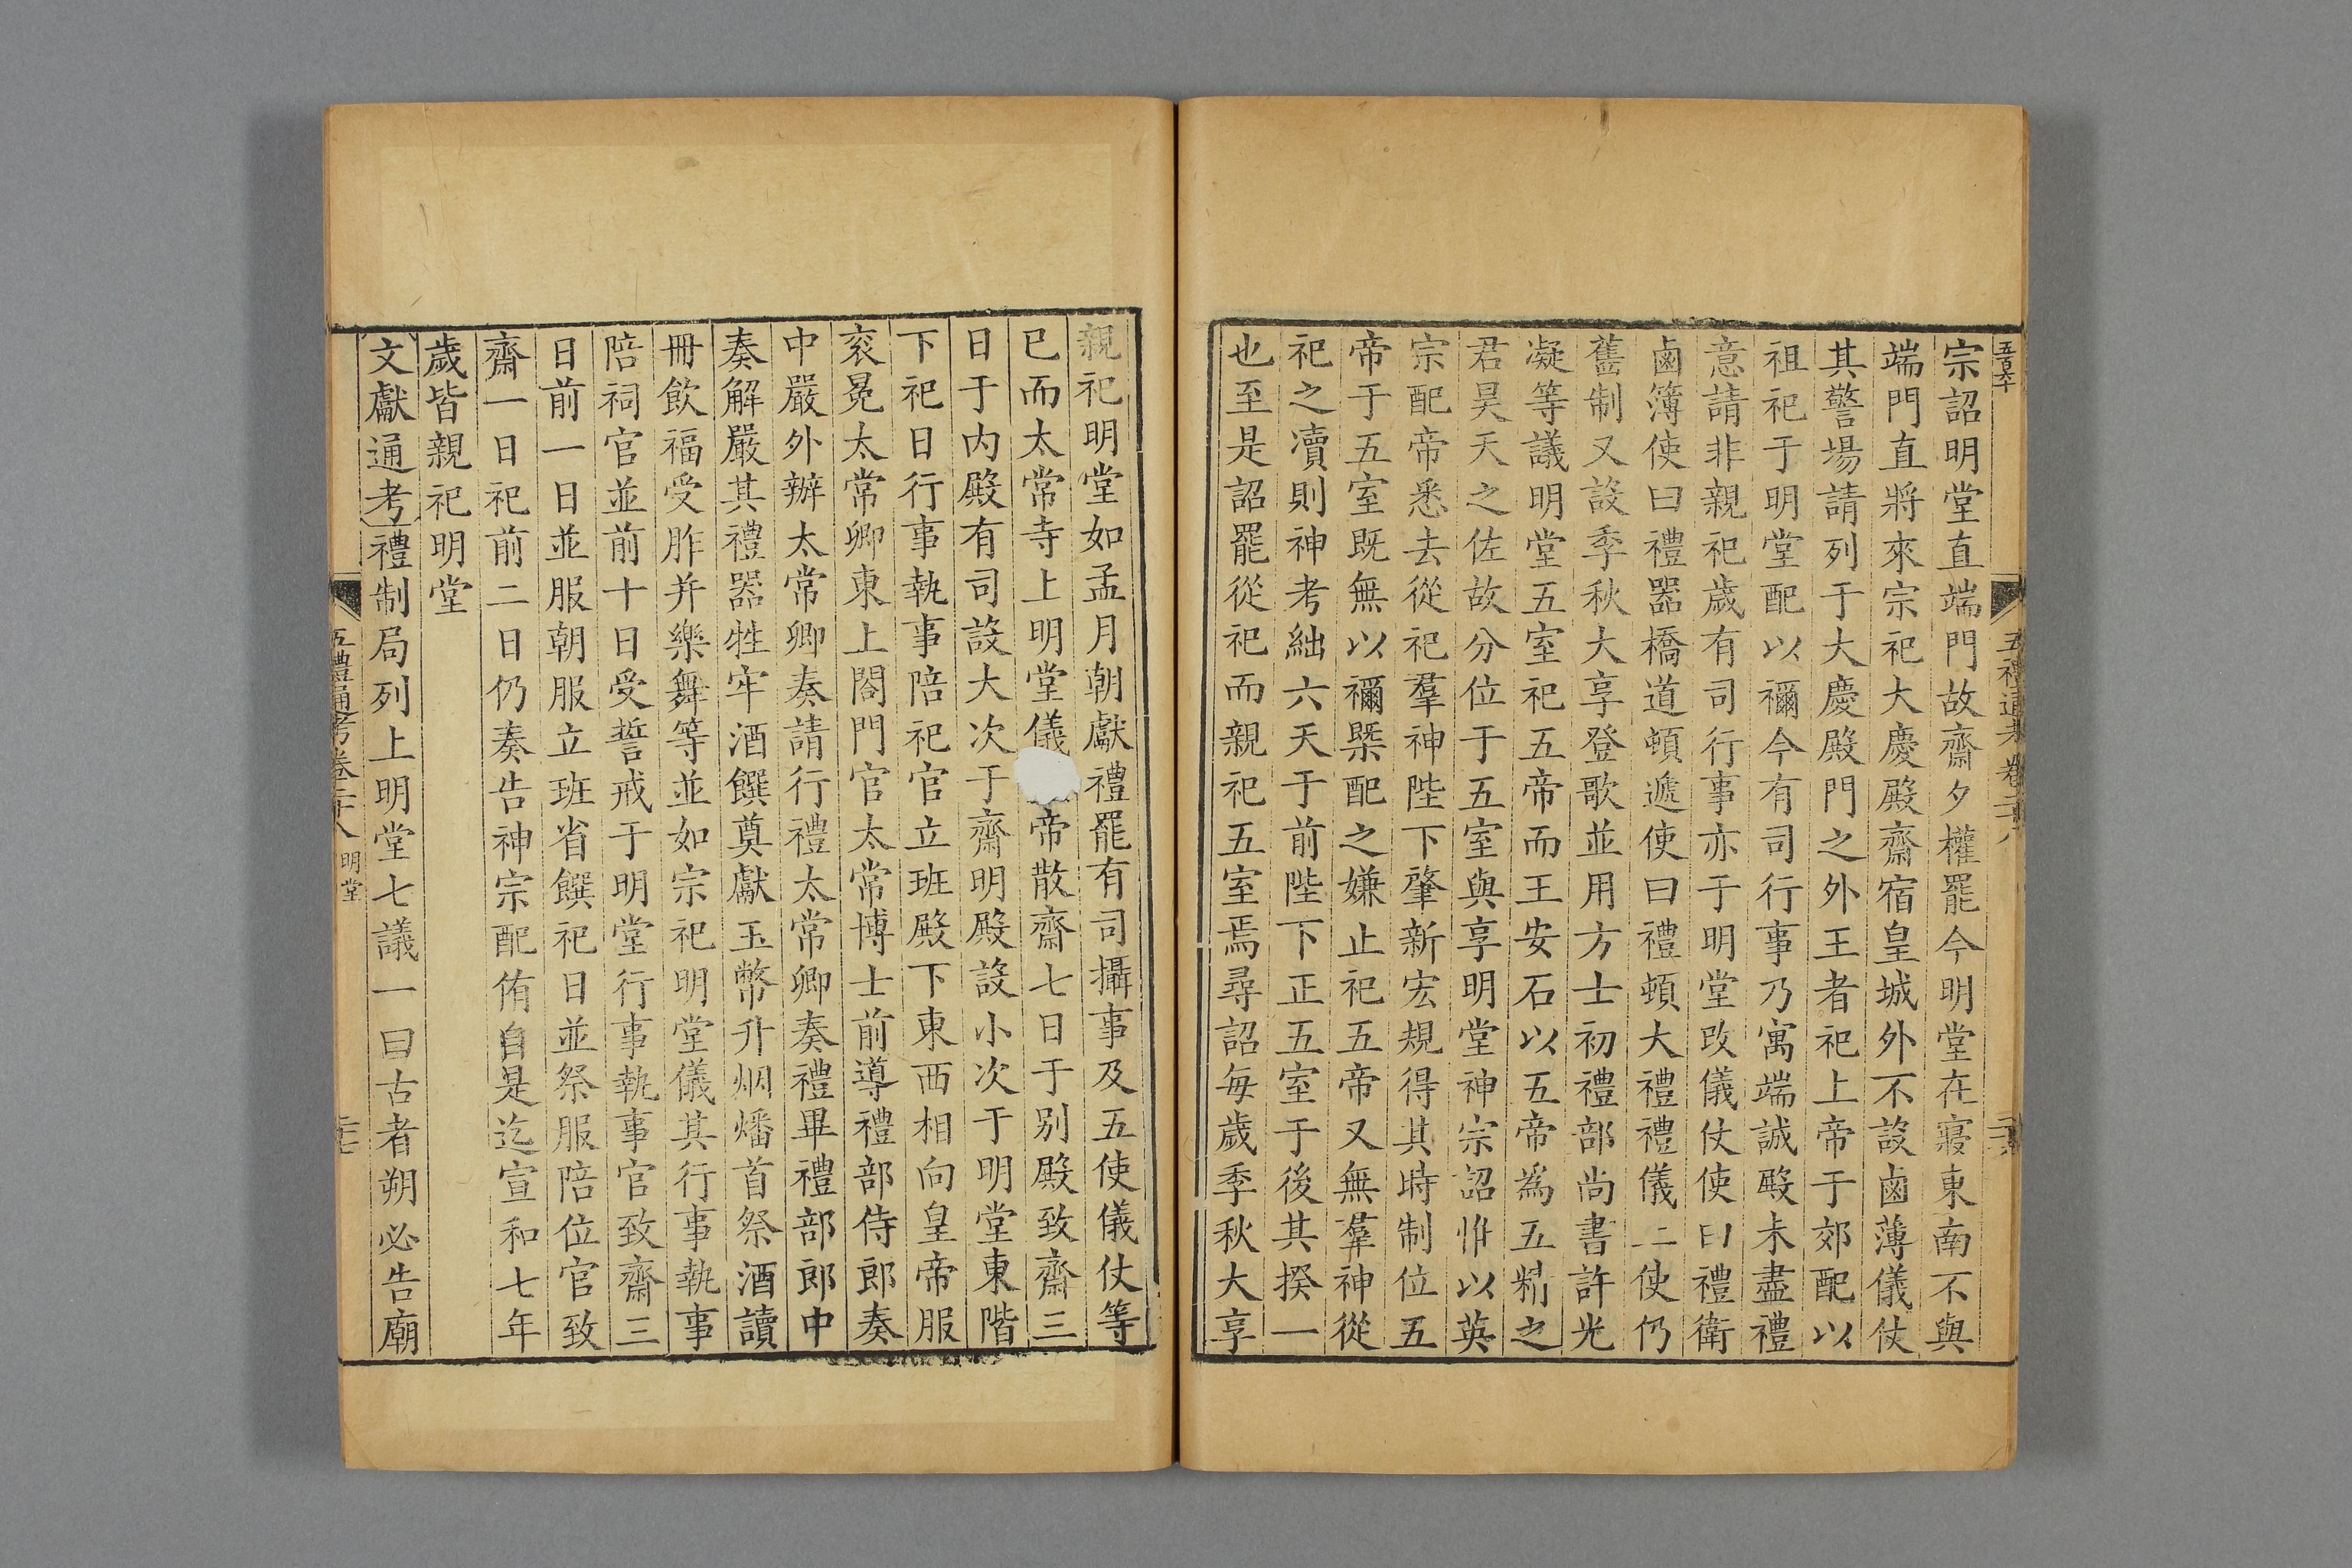 宗詔明堂直端門故齋夕權罷今明堂在寢東南不與
端門直將來宗祀大慶殿齋宿皇城外不設鹵薄儀仗
其警場請列于大慶殿門之外王者祀上帝于郊配以
祖祀于明堂配以禰今有司行事乃寓端誠殿未盡禮
意請非親祀歲有司行事亦于明堂改儀仗使曰禮衛
鹵簿使曰禮器橋道頓遞使曰禮頓大禮禮儀二使仍
舊制又設季秋大享登歌並用方士初禮部尚書許光
凝等議明堂五室祀五帝而王安石以五帝為五精之
君昊天之佐故分位于五室與享明堂神宗詔惟以英
宗配帝悉去從祀羣神陛下肇新宏規得其時制位五
帝于五室既無以禰槩配之嫌止祀五帝又無羣神從
祀之瀆則神考絀六天于前陛下正五室于後其揆一
也至是詔罷從祀而親祀五室焉尋詔每歲季秋大享
親祀明堂如孟月朝獻禮罷有司攝事及五使儀仗等
已而太常寺上明堂儀帝散齋七日于别殿致齋三
日于内殿有司設大次于齋明殿設小次于明堂東階
下祀日行事執事陪祀官立班殿下東西相向皇帝服
衮冕太常卿東上閤門官太常博士前導禮部侍郎奏
中嚴外辦太常卿奏請行禮太常卿奏禮畢禮部郎中
奏解嚴其禮器牲牢酒饌奠獻玉幣升烟燔首祭酒讀
冊飲福受胙并樂舞等並如宗祀明堂儀其行事執事
陪祠官並前十日受誓戒于明堂行事執事官致齋三
日前一日並服朝服立班省饌祀日並祭服陪位官致
齋一日祀前二日仍奏告神宗配侑自是迄宣和七年
歲皆親祀明堂
文獻通考禮制局列上明堂七議一曰古者朔必告廟
五禮通考卷二十八 明堂